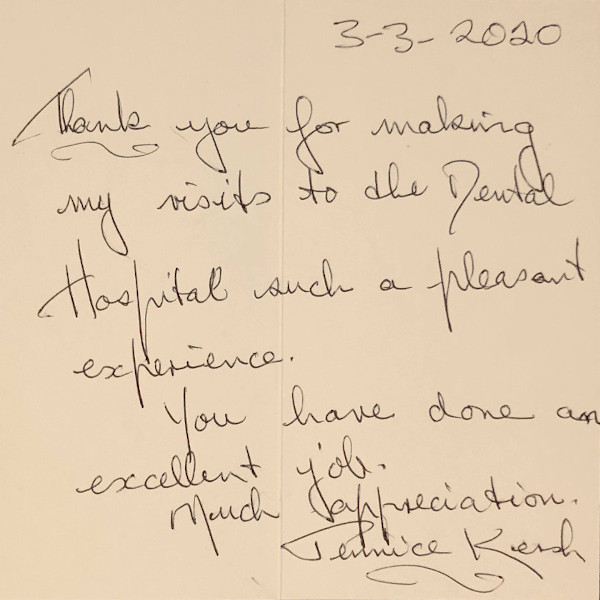 3-3-2020
Thank you for making
my visits to the Dental
Hospital such a pleasant
experience.
You have done an
excellent job.
Much appreciation.